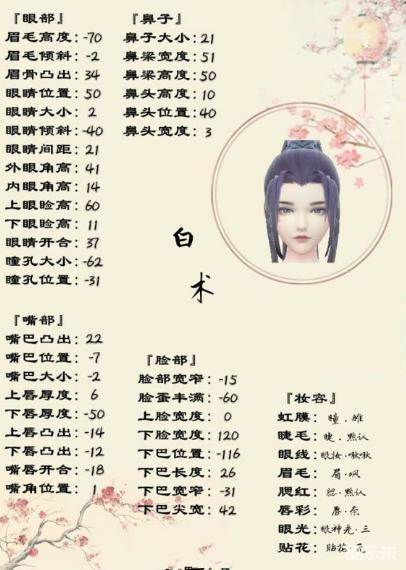 『眼部』
眉毛高度：-70
眉毛倾斜：-2
眉骨凸出：34
眼睛位置：50
眼睛大小：2
眼睛倾斜：-40
眼睛间距：21
外眼角高：41
内眼角高：14
上眼睑高：60
下眼睑高：11
眼睛开合：37
瞳孔大小：-62
瞳孔位置：-31
『鼻子』
鼻子大小：21
鼻梁宽度：51
鼻梁高度：50
鼻头高度：10
鼻头位置：40
鼻头宽度：3
白
术
『嘴部』
嘴巴凸出：22
嘴巴位置：-7
嘴巴大小：-2
上唇厚度：6
下唇厚度：-50
上唇凸出：-14
下唇凸出：-12
嘴唇开合：-18
嘴角位置：1
『脸部』
脸部宽窄：-15
脸蛋丰满：-60
上脸宽度：0
下脸宽度：120
下巴位置：-116
下巴长度：26
下巴宽窄：-31
下巴尖宽：42
『妆容』
虹膜：瞳·雄
睫毛：睫·默认
眼线：眼妆·啾啾
眉毛：眉·飒
腮红：腮·默认
唇彩：唇·奈
眼光：眼神光·三
贴花：贴花